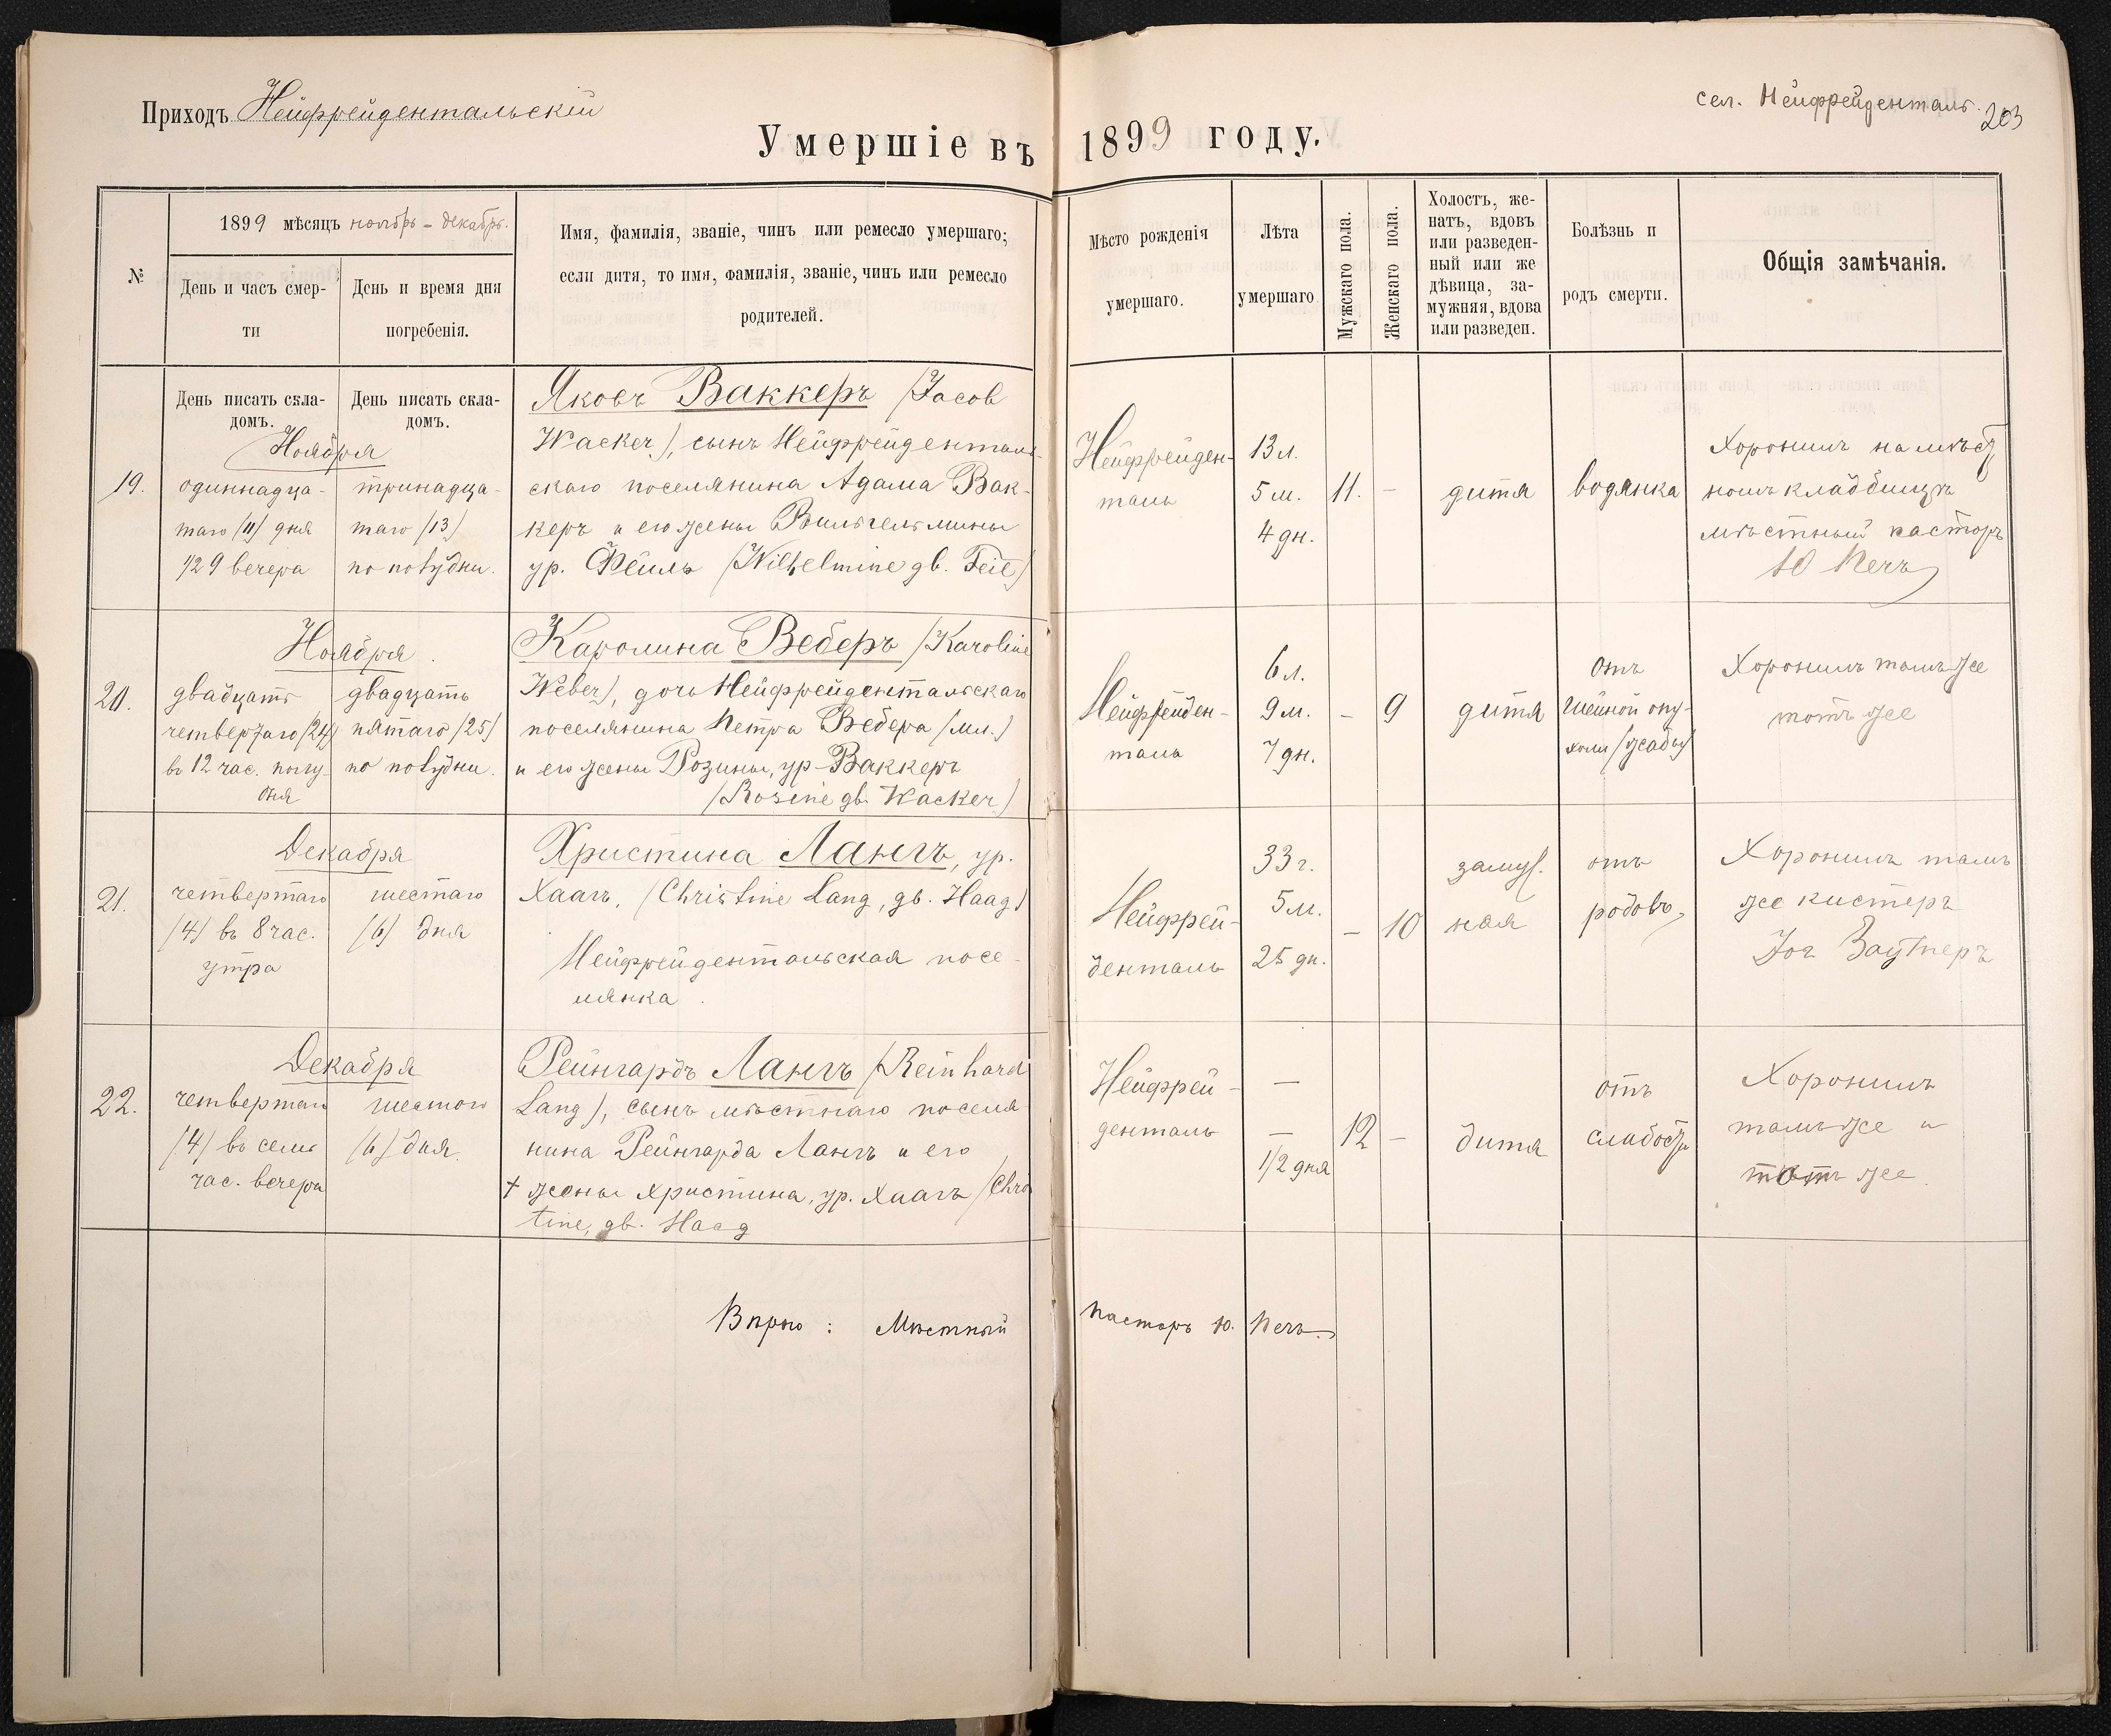 Приходъ Нейфрейдентальскій
сел. Нейфрейденталь. 203
Умершіе въ 1899 году.
№
1899 мѣсяцъ ноябрь - декабрь.
День и часъ смер-
ти
День и время дня
погребенія.
Имя, фамилія, званіе, чинъ или ремесло умершаго;
если дитя, то имя, фамилія, званіе, чинъ или ремесло
родителей.
Мѣсто рожденія
умершаго.
Лѣта
умершаго
Мужскаго пола.
Женскаго пола.
Холостъ, же-
натъ, вдовъ
или разведен-
ный или же
дѣвица, за-
мужняя, вдова
или разведен.
Болѣзнь и
родъ смерти.
Общія замѣчанія.
День писать скла-
домъ.
День писать скла-
домъ.
19.
Ноября
одиннадца-
таго (11) дня
1/2 9 вечера
тринадца-
таго (13)
по полудни.
Яковъ Ваккеръ (Jacob
Wacker), сынъ Нейфрейденталь-
скаго поселянина Адама Вак-
керъ и его жены Вильгельмины
ур. Фейль (Wilhelmine gb. Feil)
Нейфрейден-
таль
13 л.
5 м.
4 дн.
11.
-
дитя
водянка
Хоронилъ на мѣст
номъ кладбищѣ
мѣстный пасторъ
Ю Печъ
20.
Ноября.
двадцать
четвертаго (24)
въ 12 час. полу-
дня
двадцать
пятаго (25)
по полудни.
Каролина Веберъ (Karoline
Weber), дочь Нейфрейдентальскаго
поселянина Петра Вебера (мл.)
и его жены Розины, ур. Ваккеръ
(Rosine gb. Wacker)
Нейфрейден-
таль
6 л.
9 м.
7 дн.
-
9
дитя
отъ
шейной опу-
холи (жабы)
Хоронилъ тамъ же
тотъ же
21.
Декабря
четвертаго
(4) въ 8 час.
утра
шестаго
(6) дня
Христина Лангъ, ур.
Хаагъ, (Christine Lang, gb. Haag)
Нейфрейдентальская посе-
лянка.
Нейфрей-
денталь
33 г.
5 м.
25 дн.
-
10
замуж.
ная
отъ
родовъ
Хоронилъ тамъ
же кистеръ
Іог
22.
Декабря
четвертаго
(4) въ семь
час. вечера
шестого
(6) дня.
Рейнгардъ Лангъ (Reinhard
Lang), сынъ мѣстнаго поселя
нина Рейнгарда Лангъ и его
† жены Христина, ур. Хаагъ (Chris
tine, gb. Haag
Нейфрей-
денталь
—
—
1/2 дня
12
-
дитя
отъ
слабости
Хоронилъ
тамъ же и
тотъ же.
Вѣрно : Мѣстный пасторъ Ю. Печъ.